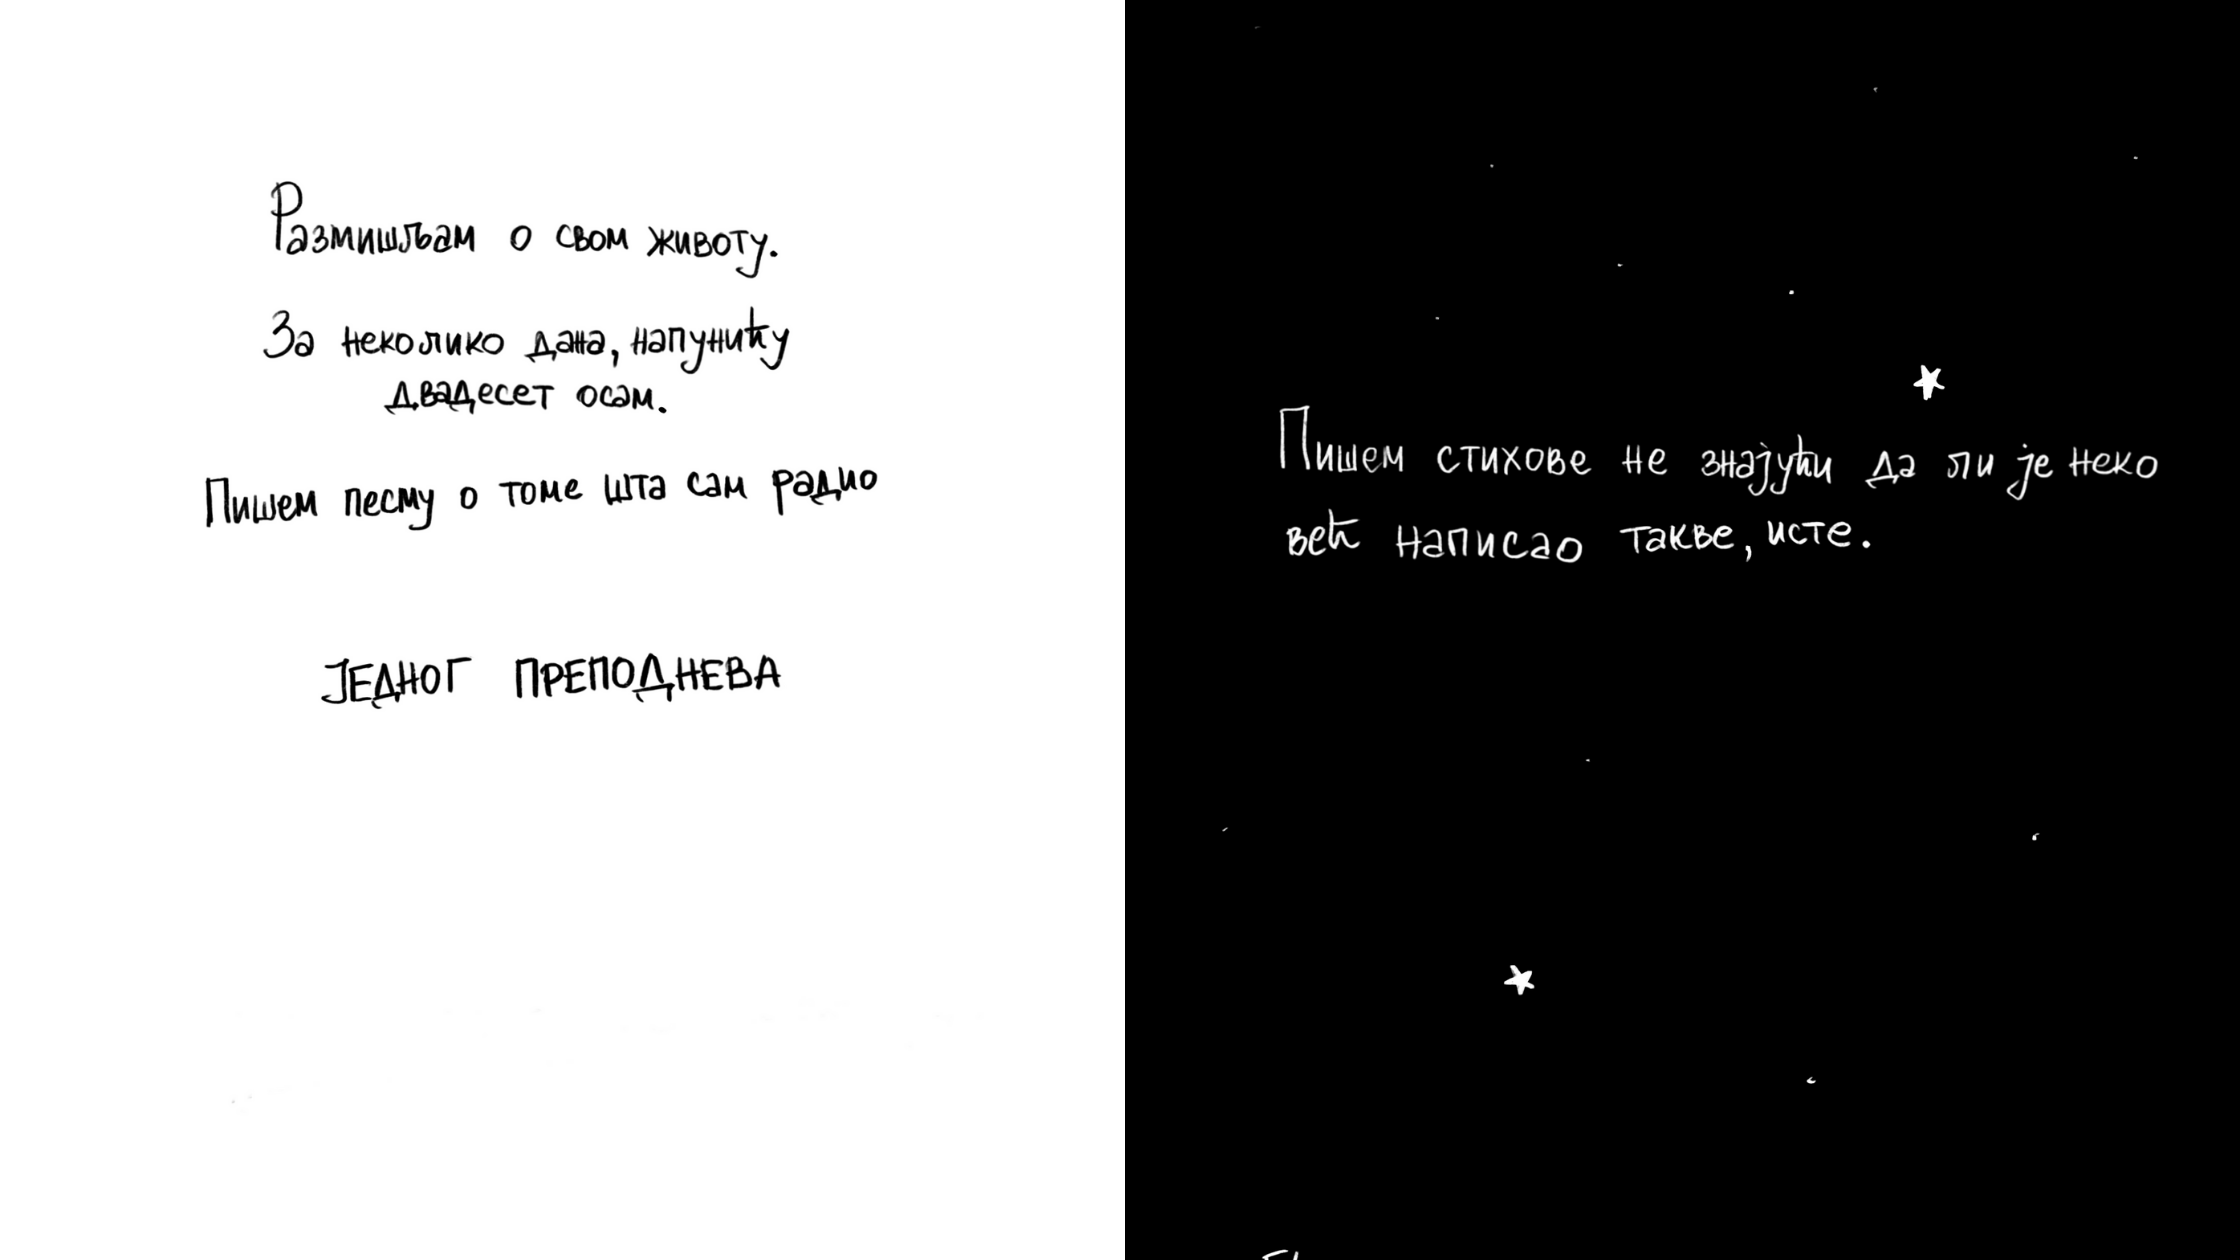 Размишљам о свом животу.
За неколико дана, напунићу
двадесет осам.
Пишем песму о томе шта сам радио
ЈЕДНОГ ПРЕПОДНЕВА
Пишем стихове не знајући да ли је неко
већ написао такве, исте.